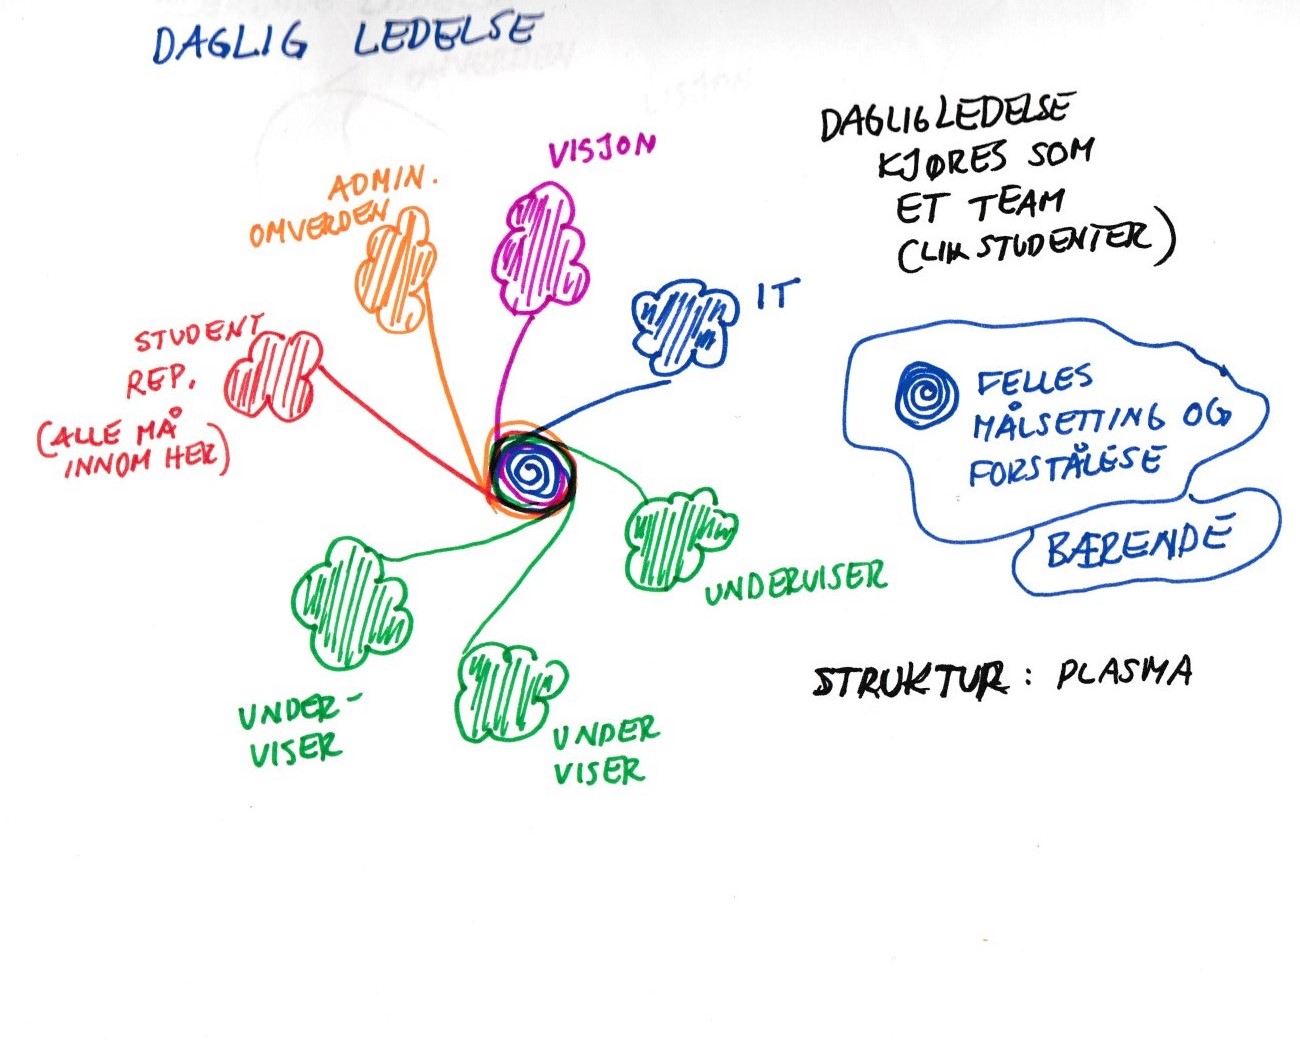 DAGLIG LEDELSE
VISJON
ADMIN.
OMVERDEN
IT
STUDENT
REP.
(ALLE MÅ
INNOM HER)
UNDERVISER
UNDER-
VISER
UNDER
VISER
DAGLIG LEDELSE
KJØRES SOM
ET TEAM
(LIK STUDENTER)
FELLES
MÅLSETTING OG
FORSTÅLESE
BÆRENDE
STRUKTUR: PLASMA